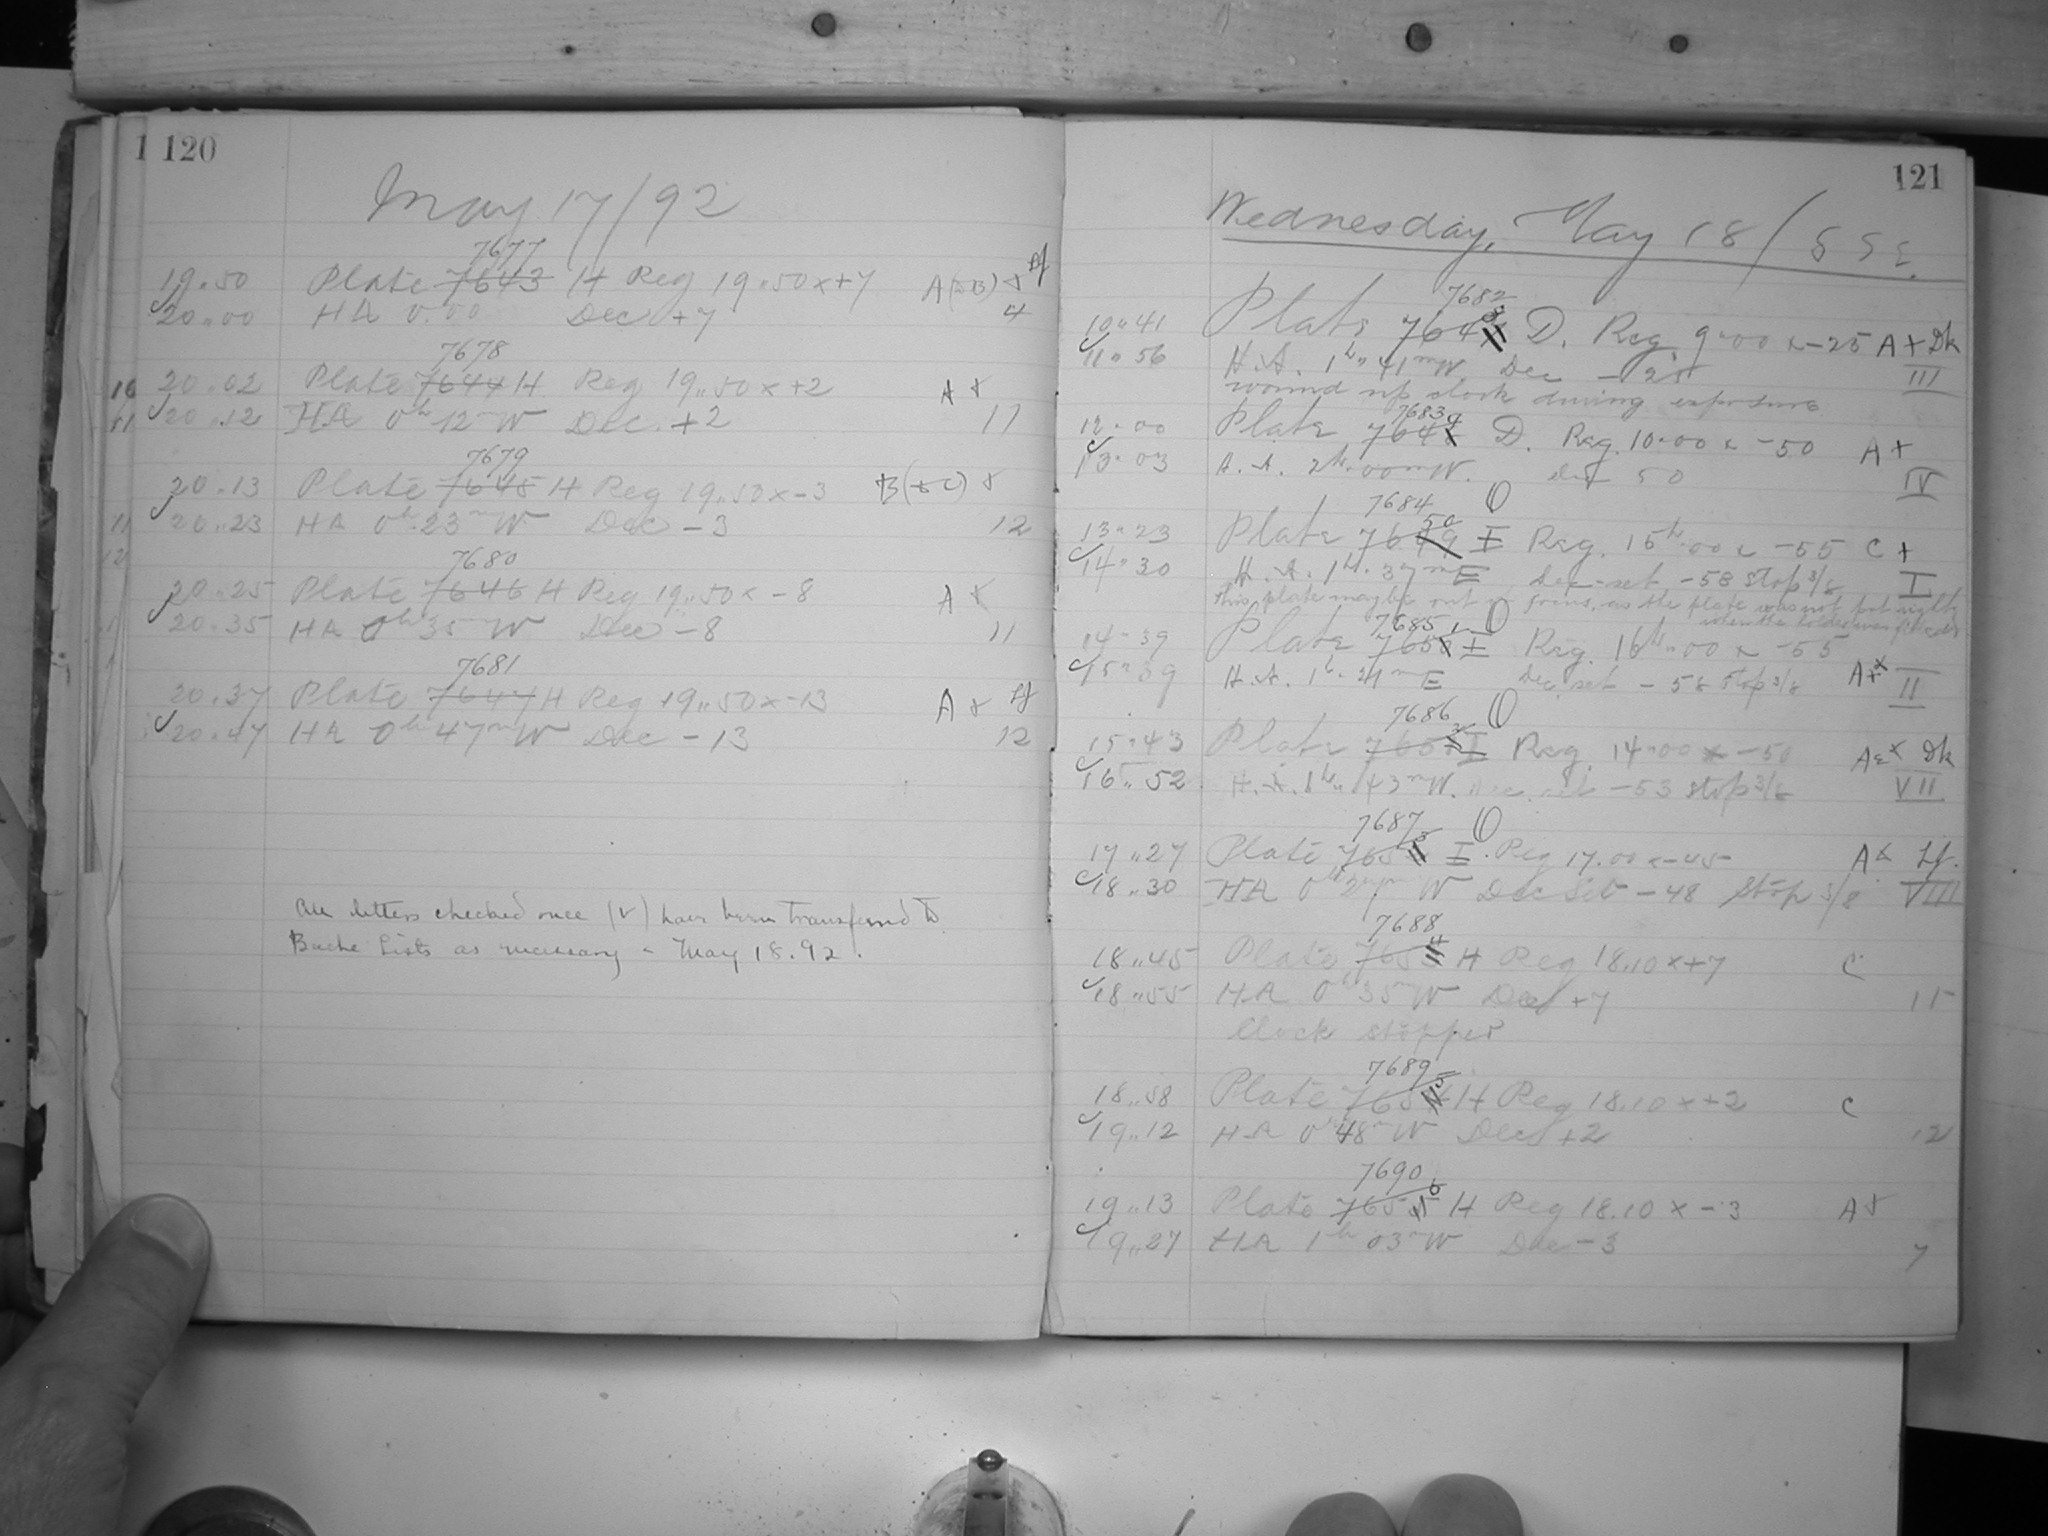 1 120
May 17/92
7677
19.50 Plate 7643 H Reg 19.50 x +7 A(+B) x Lf
20.00 HA 0.00 Dec +7 4
7678
16 20.02 Plate 7644 H Reg 19.50 x +2 A x
11 20.12 HA 0h 12m W Dec. +2 11
7679
20.13 Plate 7645 H Reg 19.50 x -3 B(+C) x
11 20.23 HA 0h 23m W Dec -3 12
12
7680
20.25 Plate 7646 H Reg 19.50 x -8 A x
20.35 HA 0h 35m W Dec -8 11
7681
20.37 Plate 7647 H Reg 19.50 x -13 A x Lf
20.47 HA 0h 47m W Dec -13 12
All letters checked once (v) have been transferred to
Bache Lists as necessary - May 18.92.
121
Wednesday, May 18/
7682
10.41 Plate D. Reg. 9.00 x -25 A + Dk
11.56 H.A. 1h 41m W. Dec -25 III
wound up clock during exposure
7683
12.00 Plate D. Reg. 10.00 x -50 A +
13.03 H.A. 2h.00m W. 50 IV
7684 O
13.23 Plate I Reg. 15h.00 x -55 C +
14.30 H.A. 1h.37m E Dec. set -58 stop 3/8 I
this plate may be out of focus, as the plate was not put right
7685 O
14.39 Plate I Reg. 16h.00 x -55
15.39 H.A. 1h. 21m E Dec. set -58 stop 3/8 A+x II
7686 O
15.43 Plate I Reg. 14.00 x -50 A x Dk
16.52 H.A. 1h. 43m W. Dec. set -53 stop 3/8 VII
7687 O
17.27 Plate I Reg 17.00 x -45 A x Lf.
18.30 HA 0h 27m W Dec Set -48 Stop 3/8 VIII
7688
18.45 Plate H Reg 18.10 x +7 C
18.55 HA 0h 35m W Dec +7 11
Clock stopped
7689
18.58 Plate H Reg 18.10 x +2 C
19.12 HA 0h 48m W Dec +2 12
7690
19.13 Plate H Reg 18.10 x -3 A x
19.27 HA 1h 03m W Dec -3 7